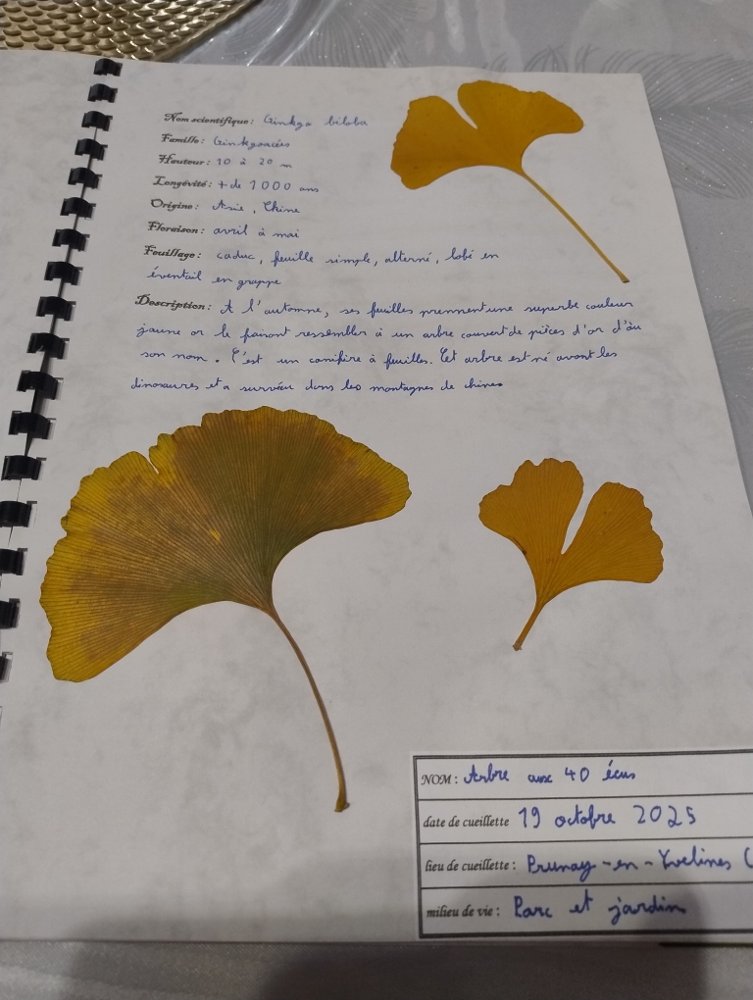 Nom scientifique : Ginkgo biloba
Famille : Ginkgoacées
Hauteur : 10 à 20 m
Longévité : + de 1000 ans
Origine : Asie, Chine
Floraison : avril à mai
Feuillage : caduc, feuille simple, alterné, lobé en
éventail en grappe
Description : A l'automne, ses feuilles prennent une superbe couleur
jaune or le faisant ressembler à un arbre couvert de pièces d'or d'où
son nom. C'est un conifère à feuilles. Cet arbre est né avant les
dinosaures et a survécu dans les montagnes de chine.
NOM : Arbre aux 40 écus
date de cueillette 19 octobre 2025
lieu de cueillette : Prunay-en-Yvelines (
milieu de vie : Parc et jardin